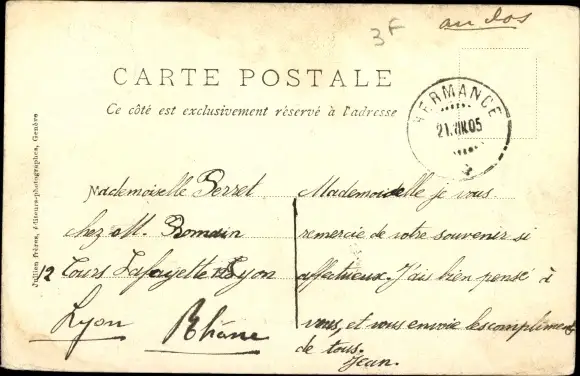 3F
au dos
CARTE POSTALE
Ce côté est exclusivement réservé à l'adresse
HERMANCE
05
Jullien frères, éditeurs-photographes, Genève
Mademoiselle Perret
chez M. Romain
12 Cours Lafayette Lyon
Lyon Rhône
Mademoiselle je vous
remercie de votre souvenir si
affectueux. J'ais bien pensé à
vous, et vous envoie les compliments
de tous.
Jean.